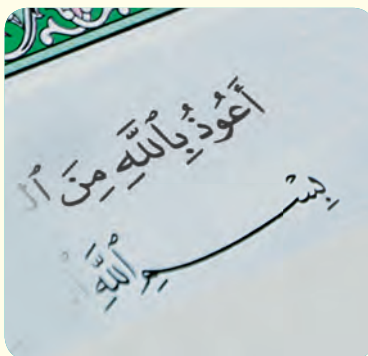 أَعُوذُ بِٱللَّهِ مِنَ ٱل
بِسْمِ ٱللَّهِ